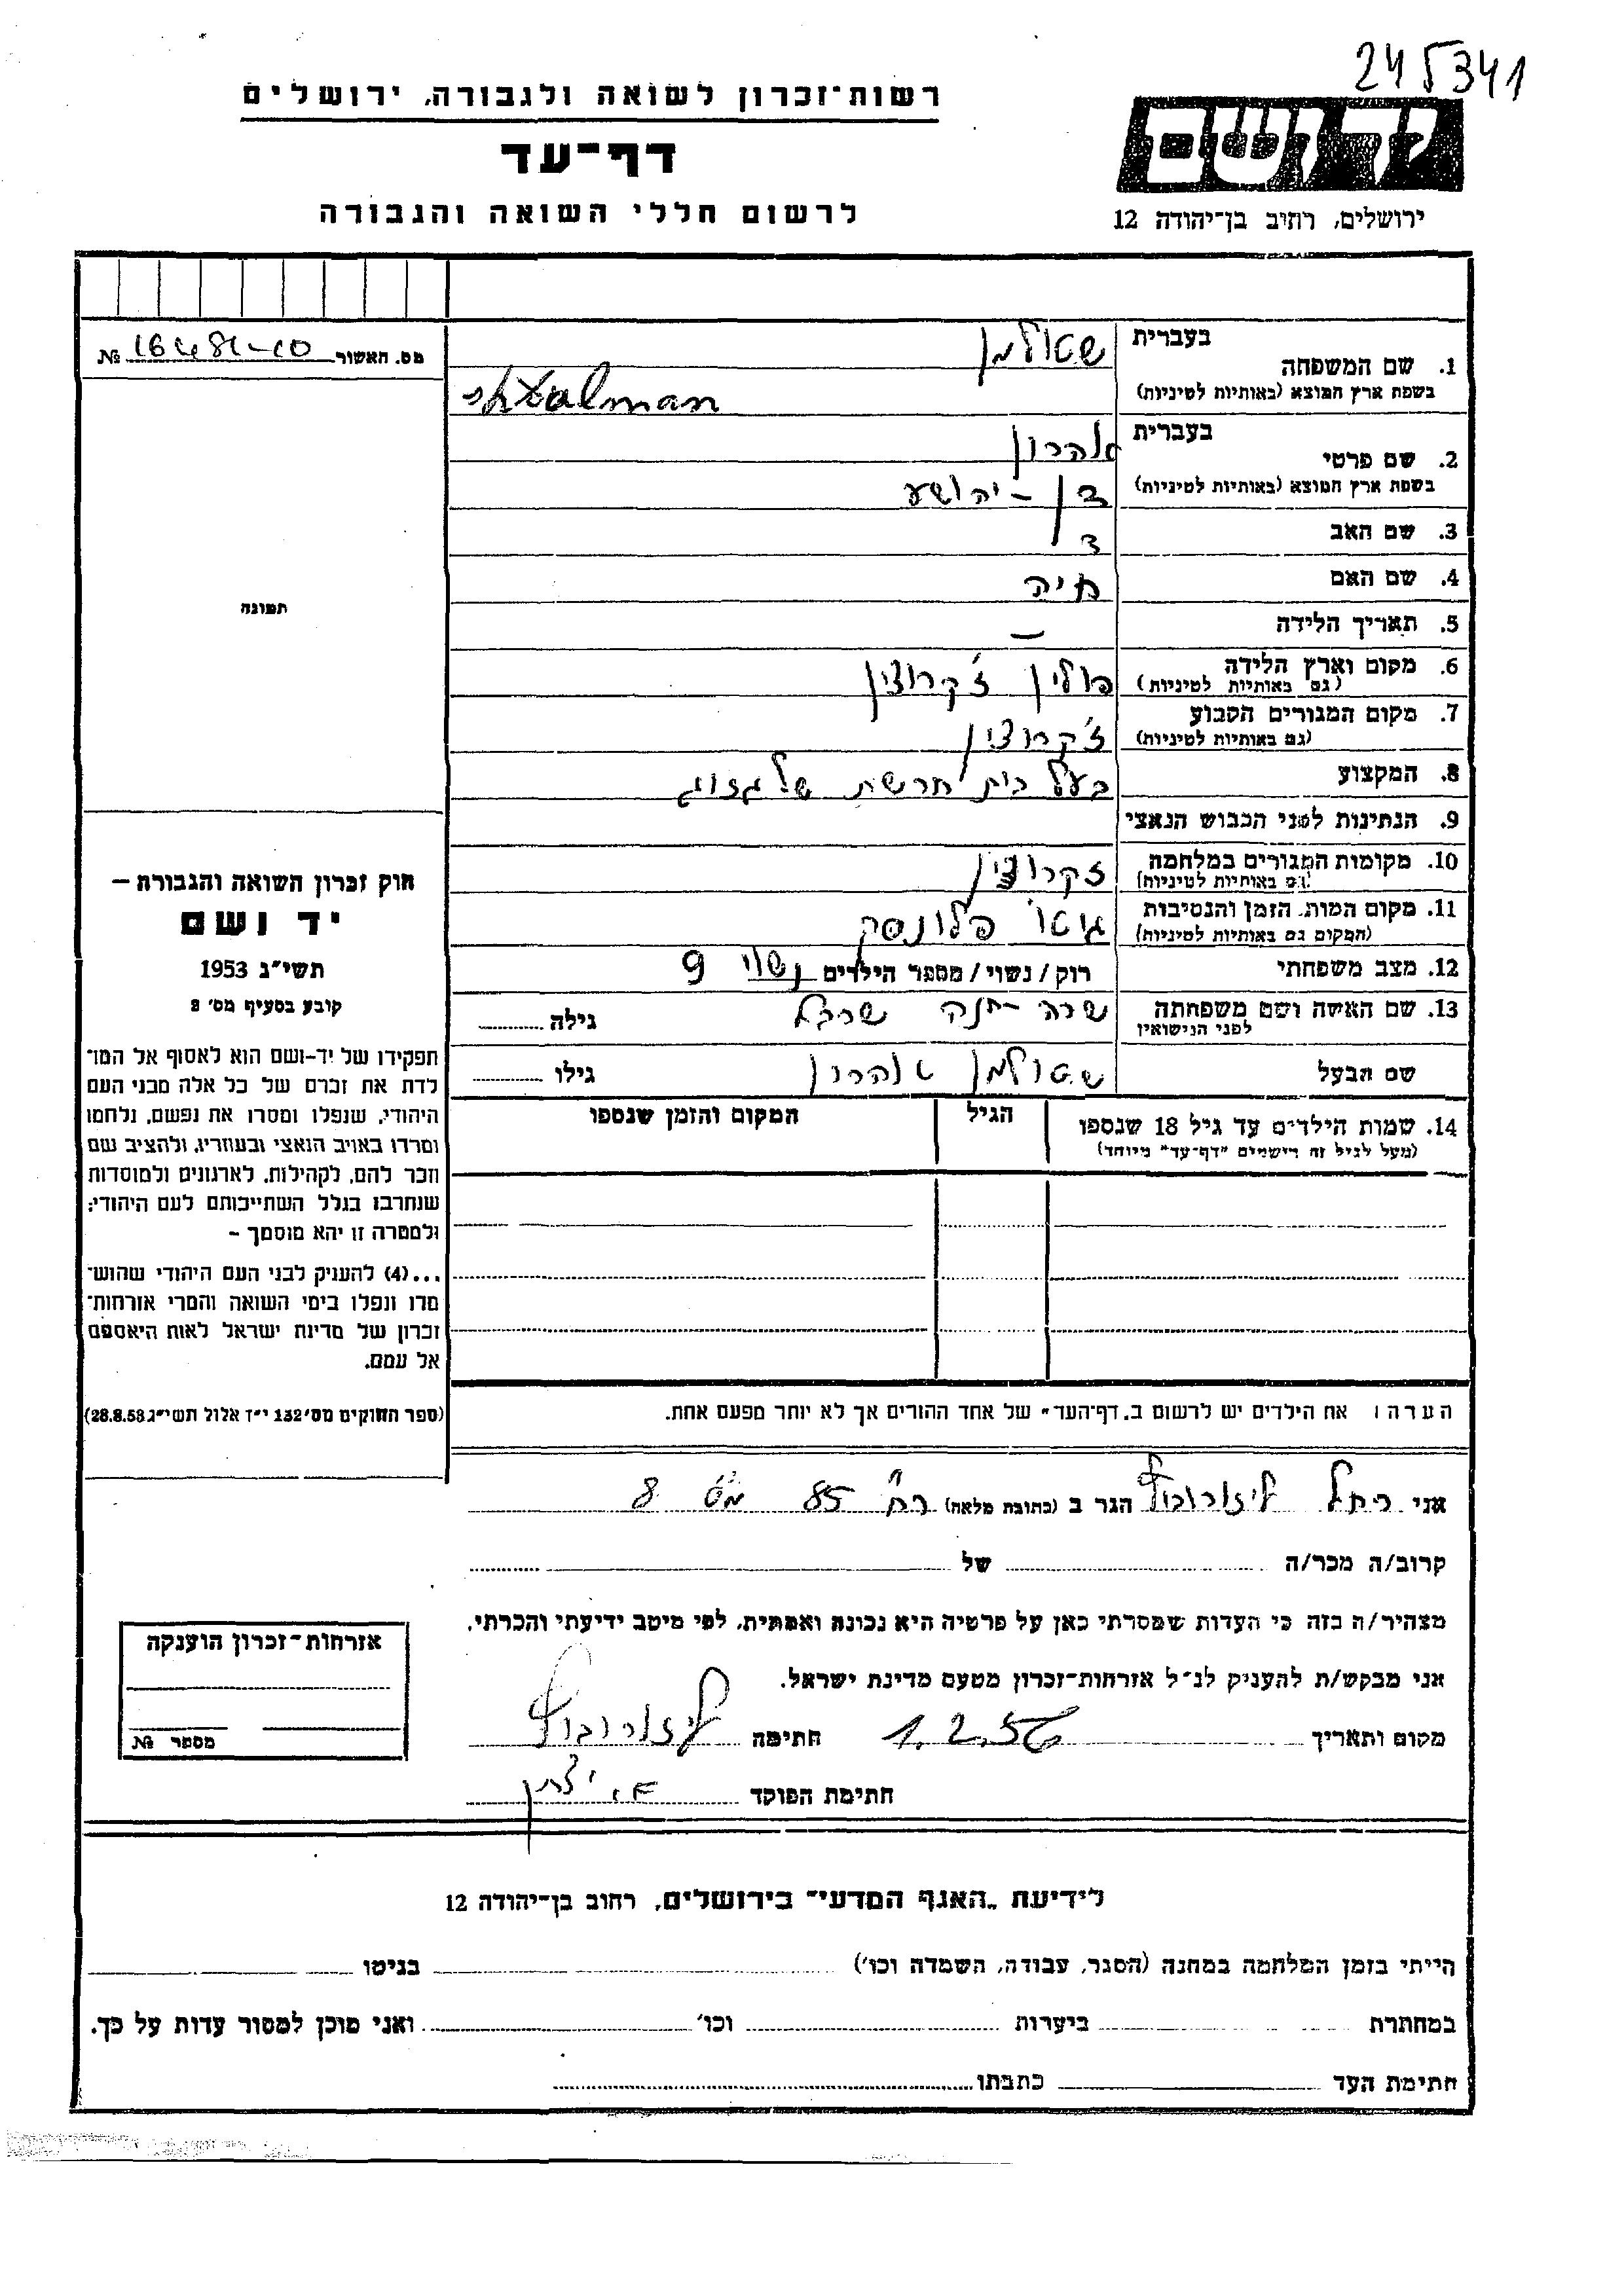 245341
רשות־זכרון לשואה ולגבורה, ירושלים
דף־עד
לרשום חללי השואה והגבורה
יד ושם
ירושלים, רחוב בן־יהודה 12
מס. האשור №
בעברית
שטולמן
1. שם המשפחה
בשפת ארץ המוצא (באותיות לטיניות)
shtolman
בעברית
אהרון
2. שם פרטי
בשפת ארץ המוצא (באותיות לטיניות)
בן - יהושע
3. שם האב
4. שם האם
חיה
5. תאריך הלידה
—
6. מקום וארץ הלידה
(גם באותיות לטיניות)
פולין ז'קרוצין
7. מקום המגורים הקבוע
(גם באותיות לטיניות)
ז'קרוצין
8. המקצוע
בעל בית חרשת של גזוז
9. הנתינות לפני הכבוש הנאצי
10. מקומות המגורים במלחמה
(גם באותיות לטיניות)
זקרוצין
11. מקום המות, הזמן והנסיבות
(המקום גם באותיות לטיניות)
גיטו פלונסק
12. מצב משפחתי
רוק/נשוי/מספר הילדים נשוי 9
13. שם האשה ושם משפחתה
לפני הנישואין
שרה - חנה
גילה
שם הבעל
שטולמן אהרון
גילו
14. שמות הילדים עד גיל 18 שנספו
(מעל לגיל זה רישמים "דף־עד" מיוחד)
הגיל
המקום והזמן שנספו
הערה: את הילדים יש לרשום ב„דף־העד" של אחד ההורים אך לא יותר מפעם אחת.
תמונה
חוק זכרון השואה והגבורה –
יד ושם
תשי"ג 1953
קובע בסעיף מס' 2
תפקידו של יד-ושם הוא לאסוף אל המו־
לדת את זכרם של כל אלה מבני העם
היהודי, שנפלו ומסרו את נפשם, נלחמו
ומרדו באויב הנאצי ובעוזריו, ולהציב שם
וזכר להם, לקהילות, לארגונים ולמוסדות
שנחרבו בגלל השתייכותם לעם היהודי;
ולמטרה זו יהא מוסמך –
...(4) להעניק לבני העם היהודי שהוש־
מדו ונפלו בימי השואה והמרי אזרחות־
זכרון של מדינת ישראל לאות היאספם
אל עמם.
(ספר החוקים מס' 132 י"ז אלול תשי"ג 28.8.53)
אני רחל הגר ב (כתובת מלאה) 85 8
קרוב/ה מכר/ה של
מצהיר/ה בזה כי העדות שמסרתי כאן על פרטיה היא נכונה ואמתית, לפי מיטב ידיעתי והכרתי.
אני מבקש/ת להעניק לנ"ל אזרחות־זכרון מטעם מדינת ישראל.
מקום ותאריך 1.2.56 חתימה
חתימת הפוקד
אזרחות־זכרון הוענקה
מספר №
לידיעת „האגף המדעי" בירושלים, רחוב בן־יהודה 12
הייתי בזמן המלחמה במחנה (הסגר, עבודה, השמדה וכו') בגיטו
במחתרת ביערות וכו' ואני מוכן למסור עדות על כך.
חתימת העד כתבתו